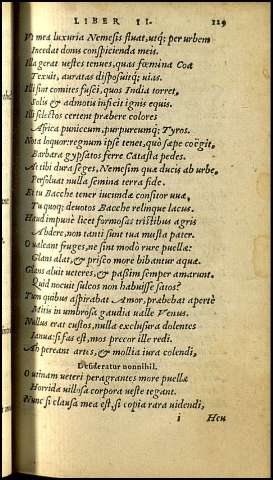 LIBER II. 129
Vt mea luxuria Nemesis fluat, utq; per urbem
Incedat donis conspicienda meis.
Illa gerat uestes tenues, quas fœmina Coa
Texuit, auratas disposuitq; uias.
Illi sint comites fusci, quos India torret,
Solis & admotis inficit ignis equis.
Illi selectos certent præbere colores
Africa puniceum, purpureumq; Tyros.
Nota loquor: regnum ipse tenet, quò sæpe coëgit,
Barbara gypsatos ferre Catasta pedes.
At tibi dura seges, Nemesim quæ ducis ab urbe,
Persoluat nulla semina terra fide.
Et tu Bacche tener iucundæ consitor uuæ,
Tu quoq; deuotos Bacche relinque lacus.
Haud impunè licet formosas tristibus agris
Abdere, non tanti sunt tua musta pater.
O ualeant fruges, ne sint modò rure puellæ:
Glans alat, & prisco more bibantur aquæ.
Glans aluit ueteres, & passim semper amarunt.
Quid nocuit sulcos non habuisse satos?
Tum quibus aspirabat Amor, præbebat apertè
Mitis in umbrosa gaudia ualle Venus.
Nullus erat custos, nulla exclusura dolentes
Ianua: si fas est, mos precor ille redi.
Ah pereant artes, & mollia iura colendi,
Desideratur nonnihil.
O utinam ueteri peragrantes more puellæ
Horrida uillosa corpora ueste tegant.
Nunc si clausa mea est, si copia rara uidendi,
i Heu